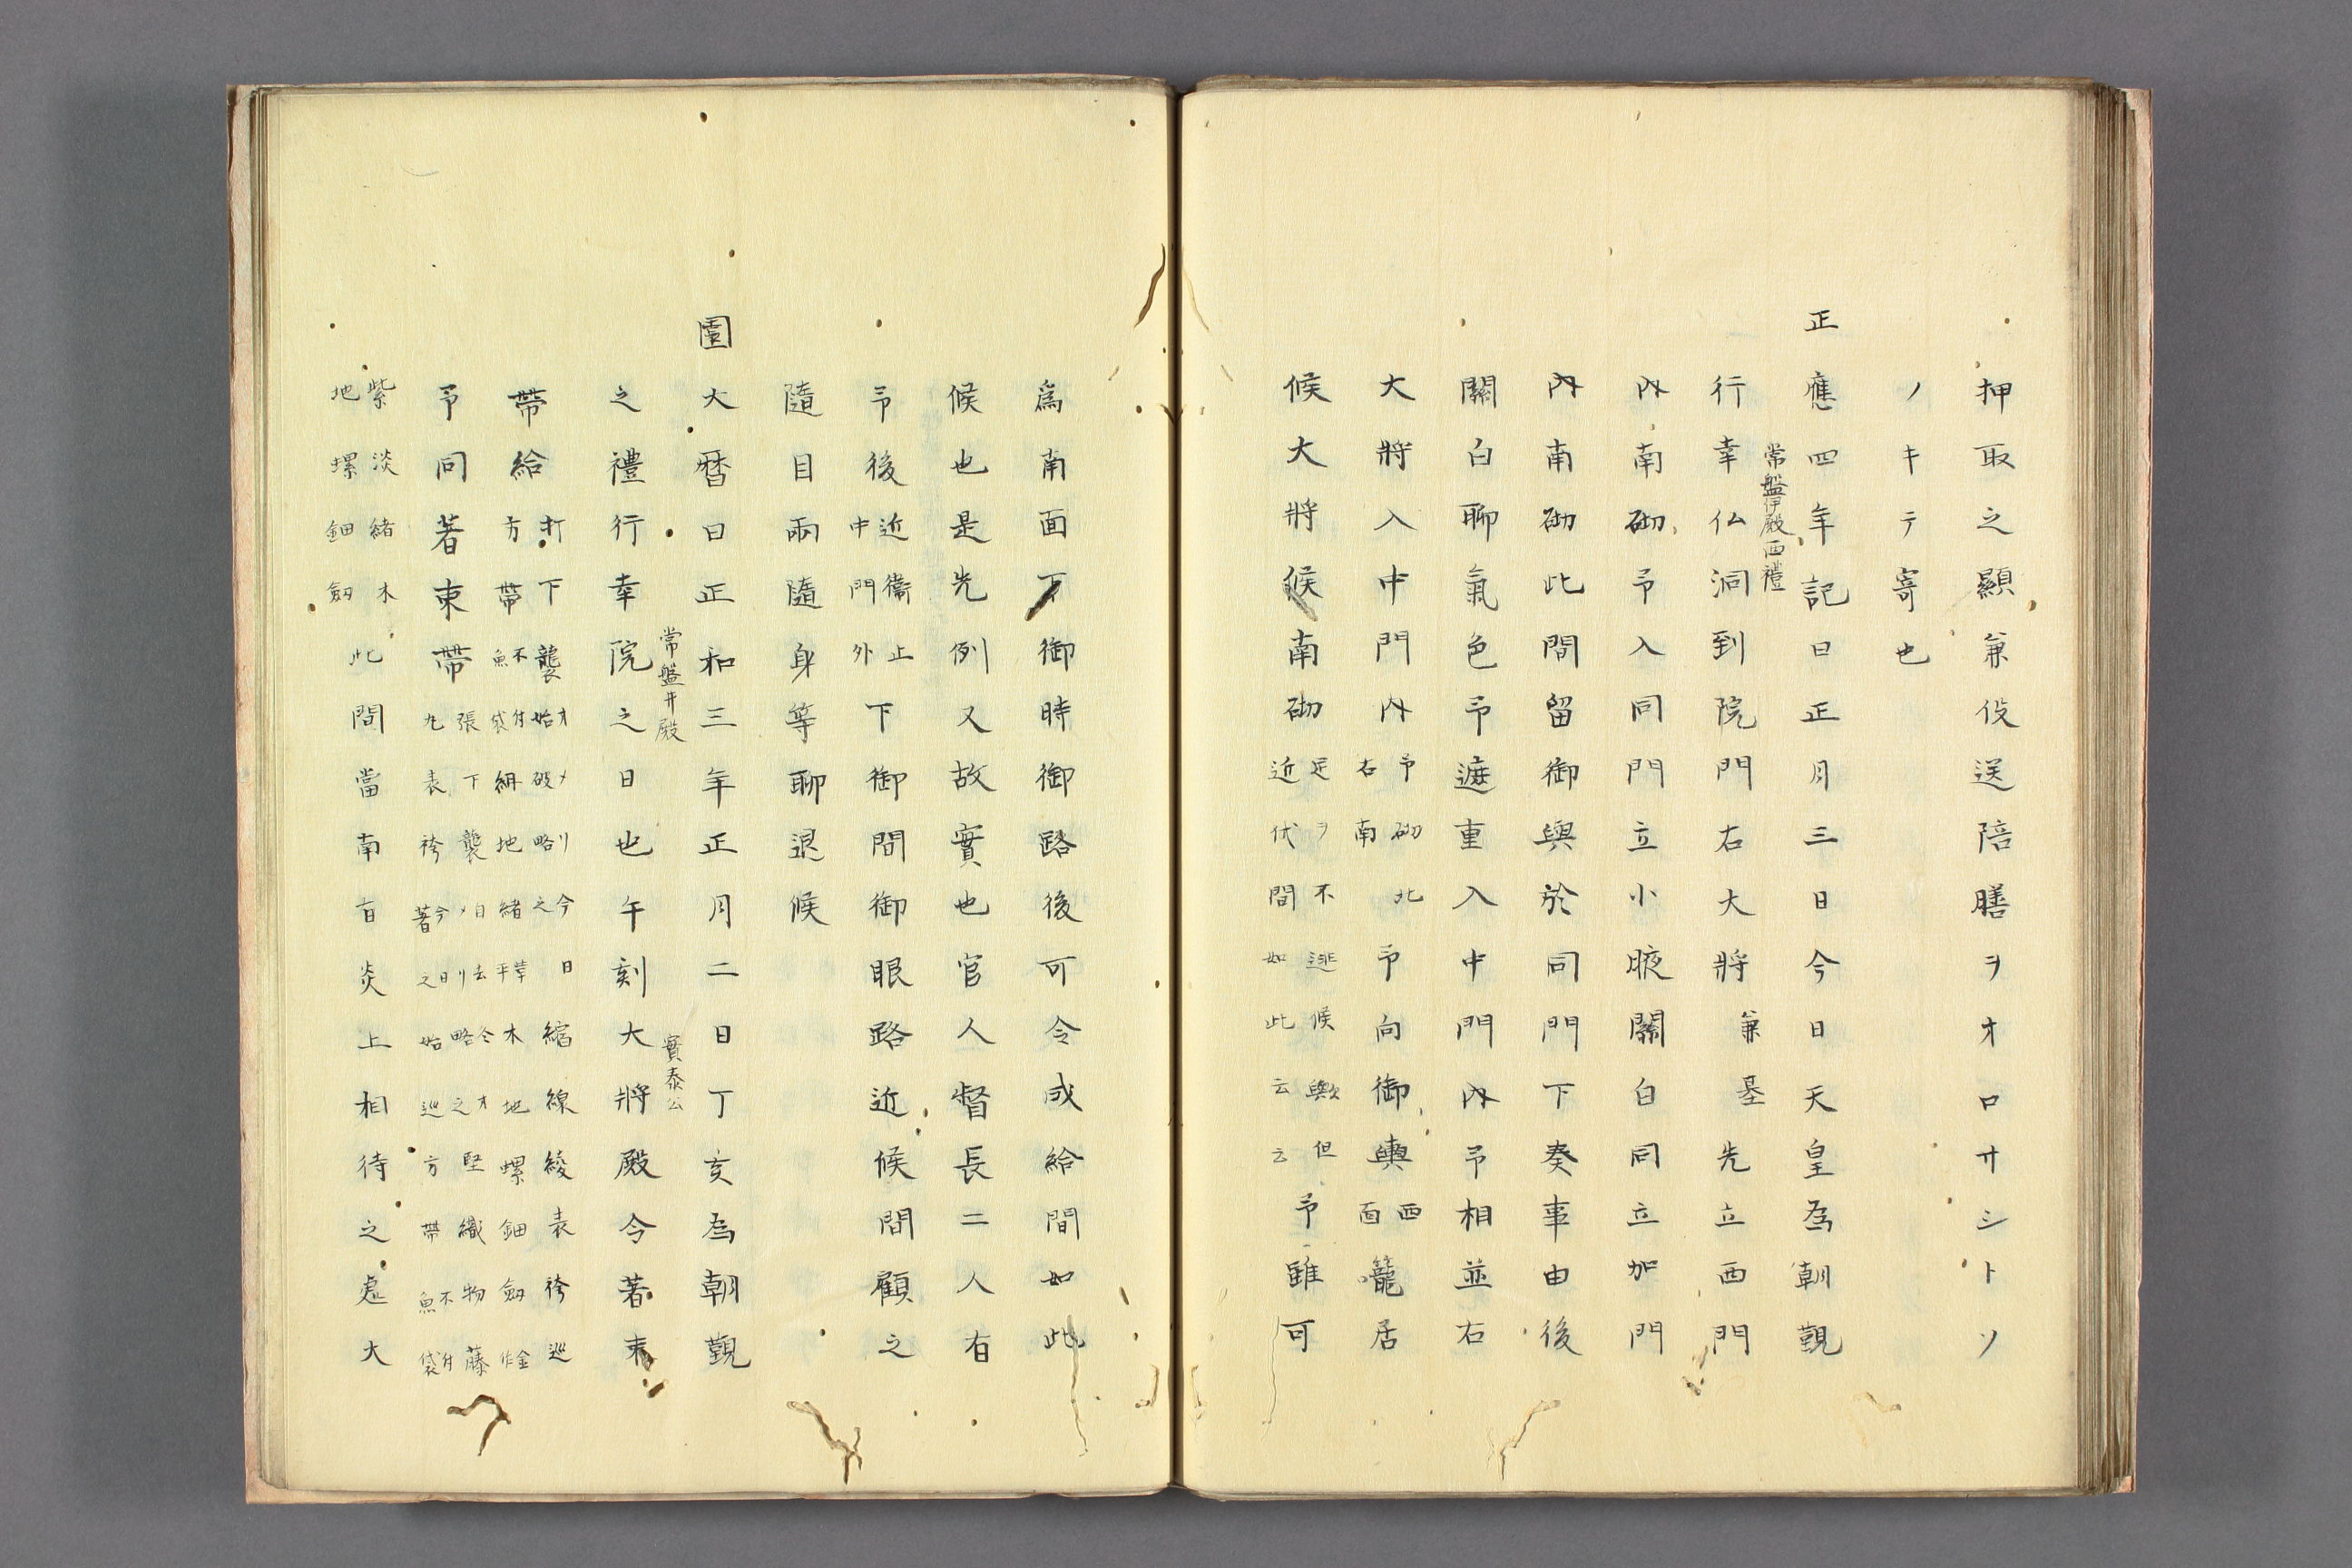 押取之顯兼伇送陪膳ヲオロサシトソ
ノキテ寄也
正應四年記曰正月三日今日天皇為朝覲
常盤井殿西禮
行幸仏洞到院門右大將兼基先立西門
内南砌予入同門立小腋關白同立加門
内南砌此間留御輿於同門下奏事由後
關白聊氣色予遮重入中門内予相並右
大將入中門内予砌北右南予向御輿西面籠居
候大將候南砌足ヲ不逃候歟但近代間如此云云予雖可
為南面下御時御路後可令成給間如此
候也是先例又故實也官人督長二人有
予後近衞止中門外下御間御眼路近候間顧之
隨目兩隨身等聊退候
園大暦曰正和三年正月二日丁亥為朝覲
常盤井殿
實泰公
之禮行幸院之日也午刻大將殿令著束
帶給打下襲始オメリ破略之今日縮線綾表袴巡方帶不付魚袋紺地緒平莘木地螺鈿劔金作
予同著束帶張下襲自去メリ今オ略之堅織物藤丸表袴今日著之始巡方帶不付魚袋
紫淡緒木地螺鈿劔此間當南有炎上相待之處大